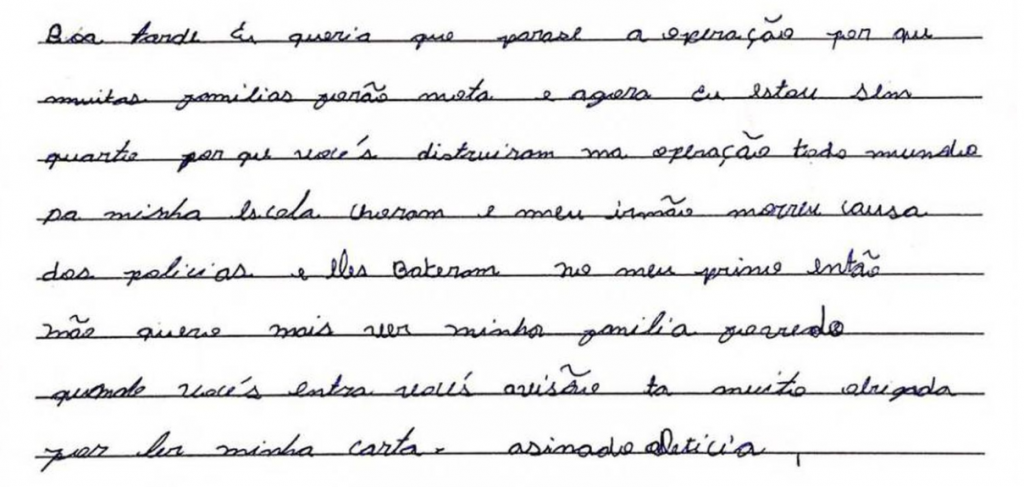 Boa tarde Eu queria que parase a operação por que
muitas familias forão mota e agora eu estou sem
quarto por que vocés distruiram na operação todo mundo
da minha escola choram e meu irmão morreu causa
dos policias e eles Bateram no meu primo então
não quero mais ver minha familia
quando vocés entra vocés avisão ta muito obrigada
por ler minha carta. asinado Leticia